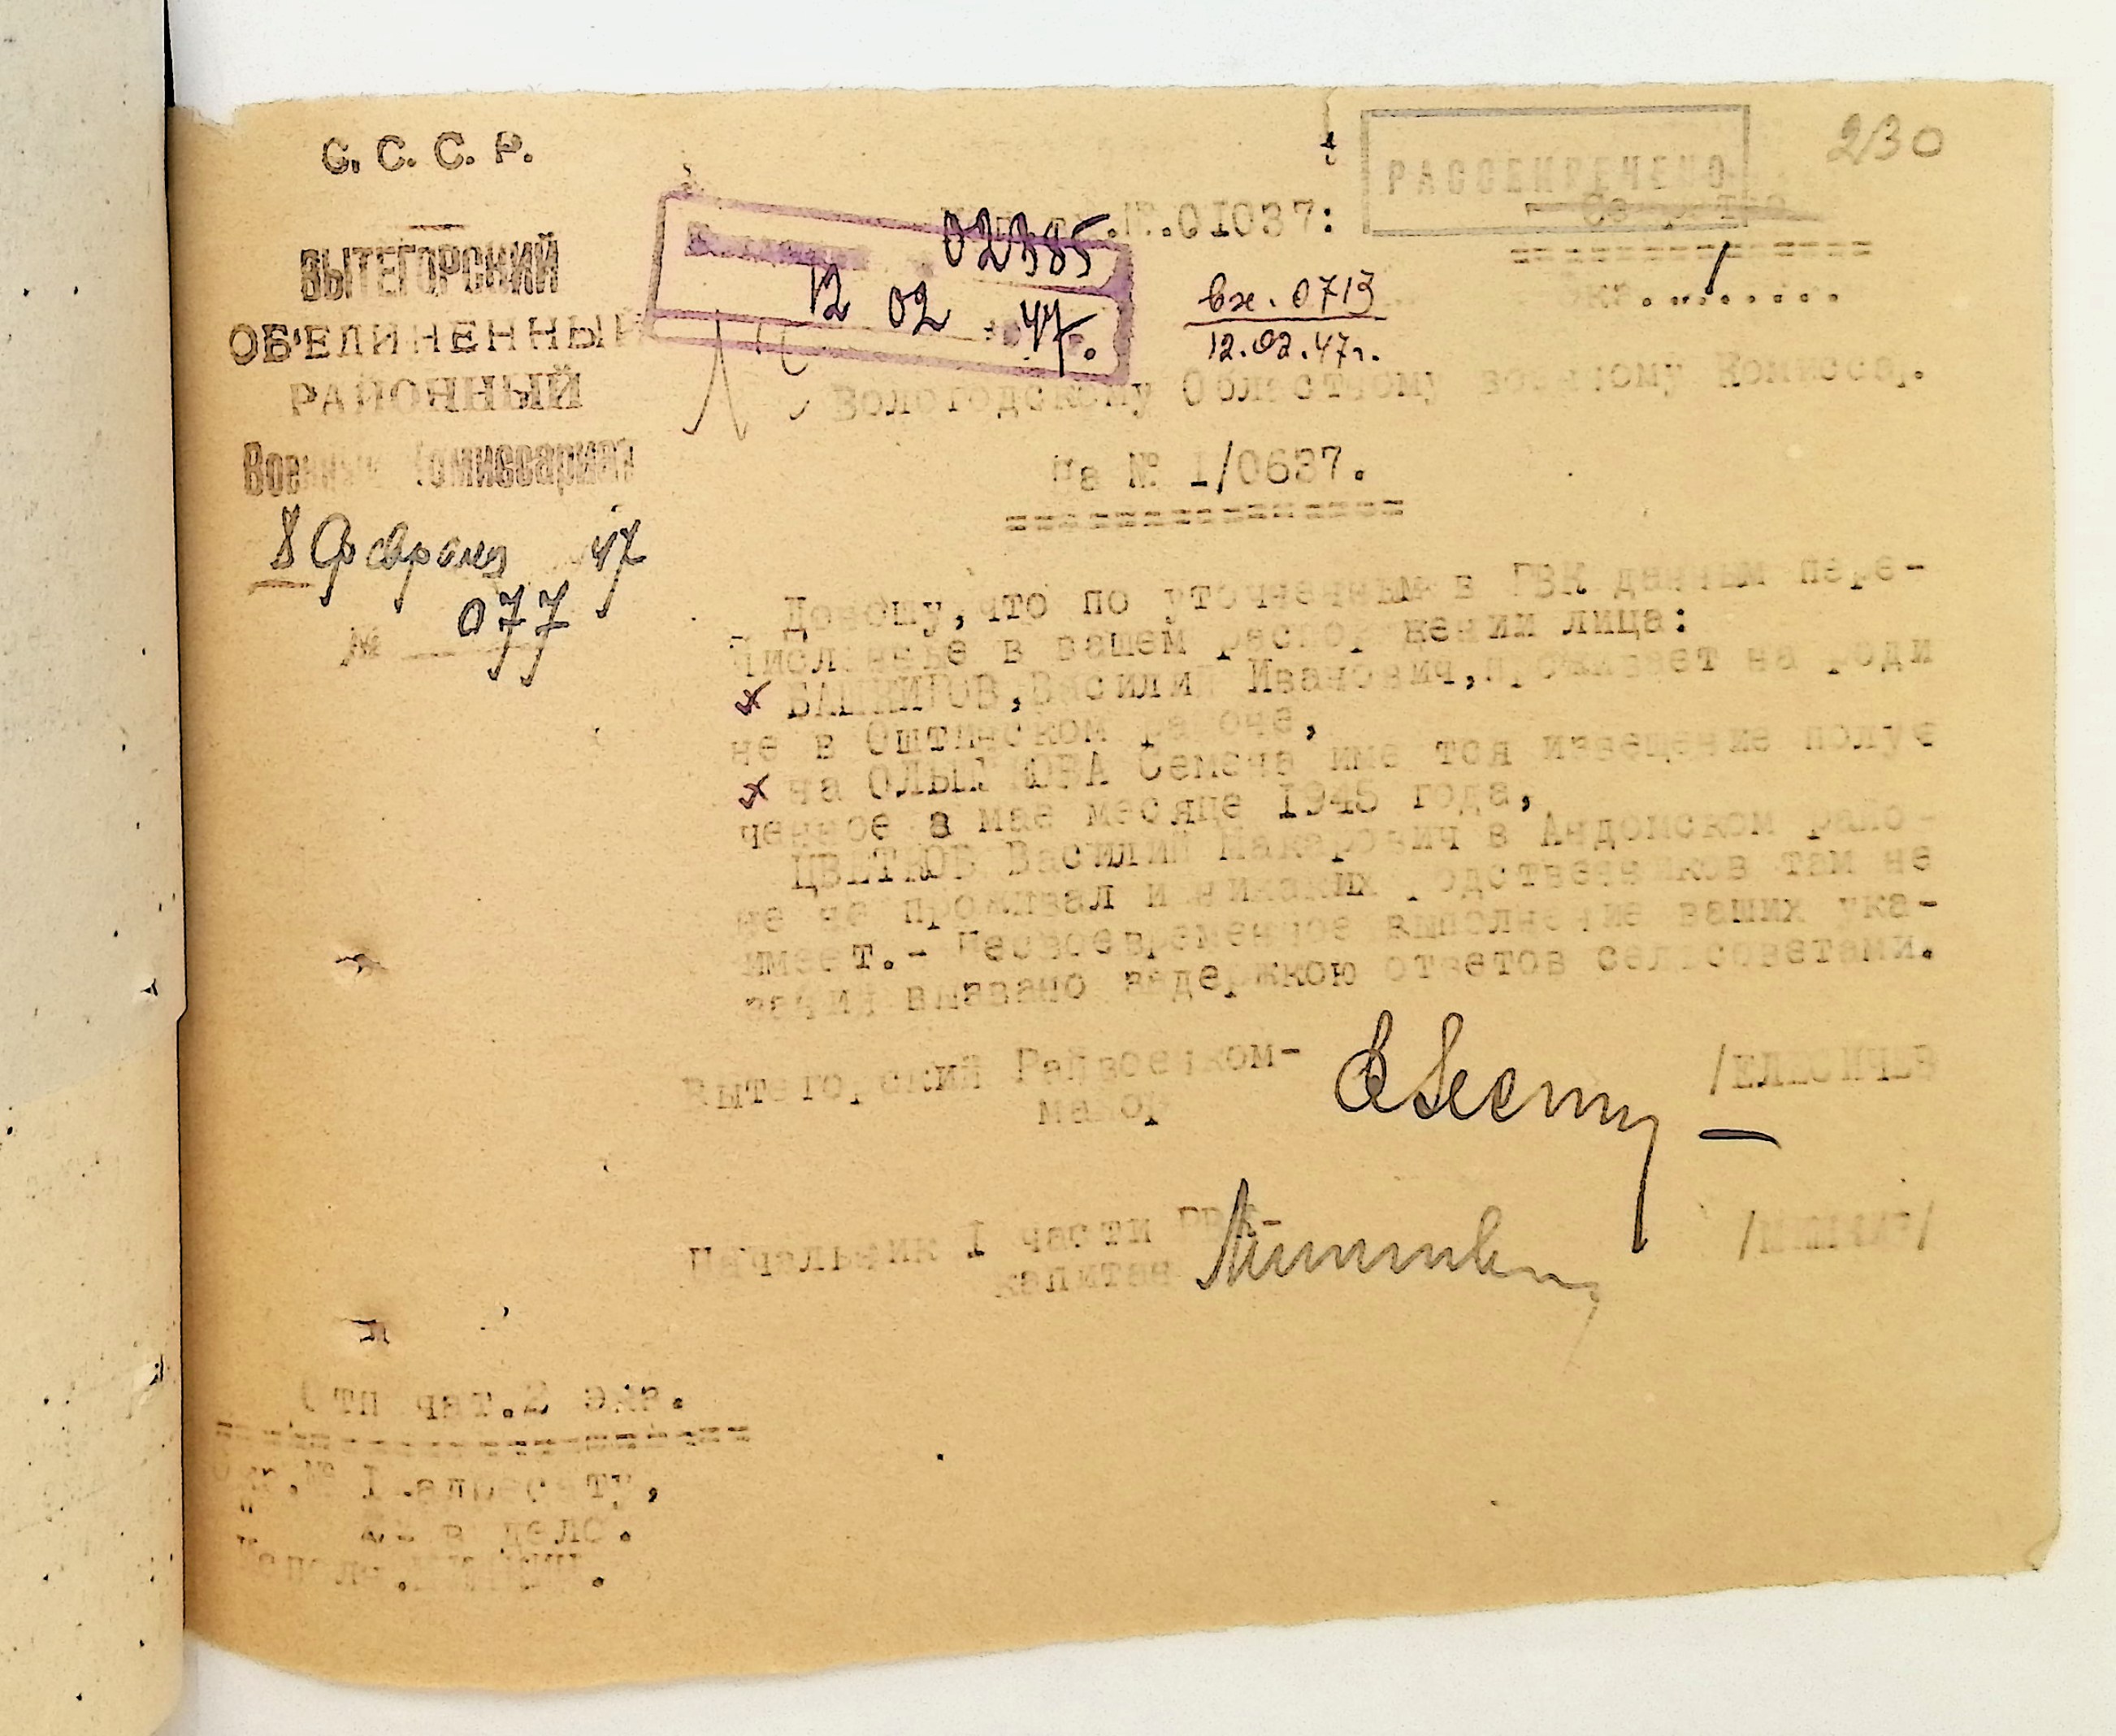 230
РАССЕКРЕЧЕНО
С. С. С. Р.
ВЫТЕГОРСКИЙ
ОБ'ЕДИНЕННЫЙ
РАЙОННЫЙ
Военный Комиссариат
8 февраля 47
№ 077
01037:
02385
12 02 47.
вх. 0713
12.02.47г.
Экз.
Вологодскому Областному военному Комиссар.
на № 1/0637.
Доношу, что по уточненным в РВК данным пере-
численные в вашем распоряжении лица:
БАШКИРОВ, Василий Иванович, проживает на роди
не в Оштинском районе,
на Семена имеется извещение полуе
ченное в мае месяце 1945 года,
ЦВЕТКОВ Василий Макарович в Андомском райо-
не не проживал и никаких родственников там не
имеет.- Несвоевременное выполнение ваших ука-
заний вызвано задержкою ответов сельсоветами.
Вытегорский Райвоенком-
майор
Начальник I части РВК-
капитан
Отпечат.2 экз.
Экз.№ I-адресату,
" 2- в дело.